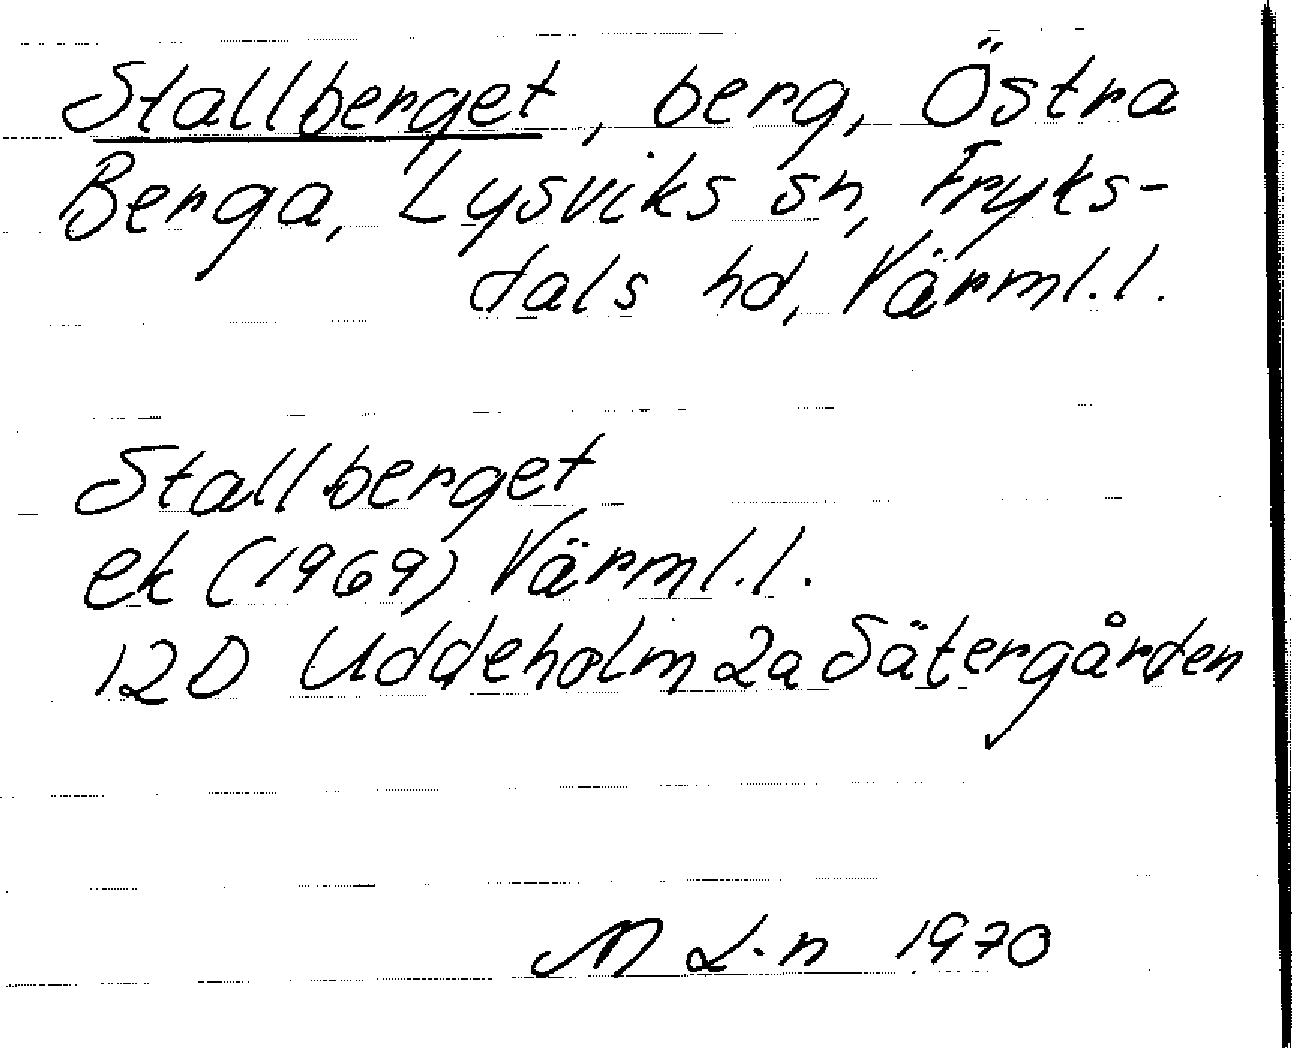 Stallberget, berg, Östra
Berga, Lysviks sn, Fryks-
dals hd, Värml.l.
Stallberget
ek (1969) Värml.l.
12D Uddeholm 2a Sätergården
M L-n 1970